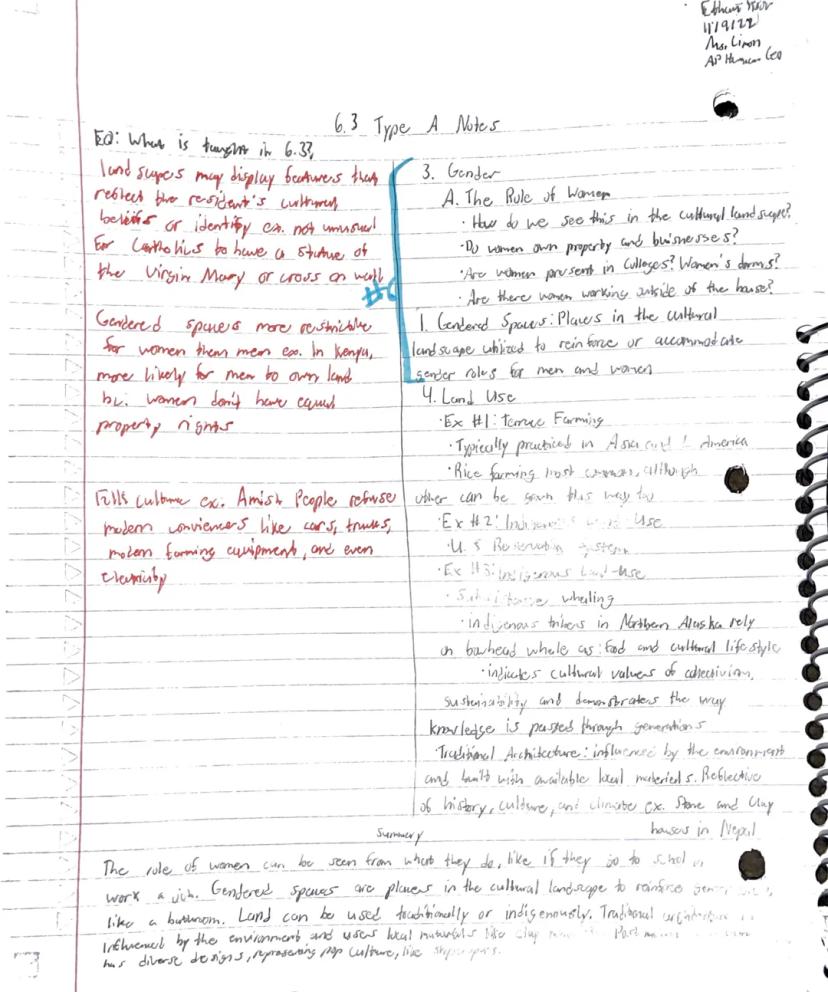 11/9/22
Ms. Limon
AP Human Geo
6.3 Type A Notes
EQ: What is taught in 6.3?
landscapes may display features that
reflect the resident's cultural
beliefs or identity ex. not unusual
for Catholics to have a statue of
the Virgin Mary or cross on wall
Gendered spaces more restrictive
for women them men ex. In Kenya,
more likely for men to own land
bc. women don't have equal
property rights
Folk culture ex. Amish People refuse
modern conviences like cars, trucks,
modern farming equipment, and even
electricity
3. Gender
A. The Role of Women
· How do we see this in the cultural landscape?
· Do women own property and buisnesses?
· Are women present in Colleges? Women's dorms?
· Are there women working outside of the house?
1. Gendered Spaces: Places in the cultural
landscape utilized to reinforce or accommodate
gender roles for men and women
4. Land Use
· Ex #1: Terrace Farming
· Typically practiced in Asia and America
· Rice farming most common, although
other can be grown this way too
· Ex #2: Indigenous Use
· U.S Reservation System
· Ex #3: Indigenous Land Use
· Subsistence whaling
· indigenous tribes in Northern Alaska rely
on bowhead whale as: food and cultural lifestyle
· indicates cultural values of collectivism,
sustainability and demonstrates the way
knowledge is passed through generations
· Traditional Architecture: influenced by the environment
and built with available local materials. Reflective
of history, culture, and climate ex. Stone and Clay
houses in Nepal
Summary
The role of women can be seen from what they do, like if they go to school or
work a job. Gendered spaces are places in the cultural landscape to reinforce gender
like a bathroom. Land can be used traditionally or indigenously. Traditional architecture is
influenced by the environment and uses local materials like clay
has diverse designs, representing pop culture, like skyscrapers.